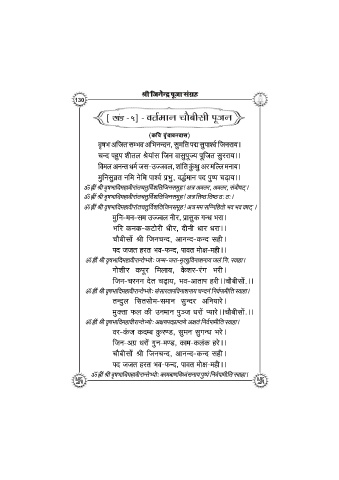 श्री जिनेन्द्र पूजा संग्रह
130
[ खंड - ५ ] - वर्तमान चौबीसी पूजन
(कवि वृंदावनदास)
वृषभ अजित सम्भव अभिनन्दन, सुमति पद्म सुपार्श्व जिनराय।
चन्द पहुप शीतल श्रेयांस जिन वासुपूज्य पूजित सुरराय।।
विमल अनन्त धर्म जस-उज्ज्वल, शांति कुंथु अर मल्लि मनाय।
मुनिसुव्रत नमि नेमि पार्श्व प्रभु, वर्द्धमान पद पुष्प चढ़ाय।।
ॐ ह्रीं श्री वृषभादिमहावीरांतचतुर्विंशतिजिनसमूह ! अत्र अवतर, अवतर, संवौषट् ।
ॐ ह्रीं श्री वृषभादिमहावीरांतचतुर्विंशतिजिनसमूह ! अत्र तिष्ठ तिष्ठ ठः ठः ।
ॐ ह्रीं श्री वृषभादिमहावीरांतचतुर्विंशतिजिनसमूह ! अत्र मम सन्निहितो भव भव वषट् ।
मुनि-मन-सम उज्ज्वल नीर, प्रासुक गन्ध भरा।
भरि कनक-कटोरी धीर, दीनी धार धरा।।
चौबीसों श्री जिनचन्द, आनन्द-कन्द सही।
पद जजत हरत भव-फन्द, पावत मोक्ष-मही।।
ॐ ह्रीं श्री वृषभादिमहावीरान्तेभ्योः जन्म-जरा-मृत्युविनाशनाय जलं नि. स्वाहा।
गोशीर कपूर मिलाय, केशर-रंग भरी।
जिन-चरनन देत चढ़ाय, भव-आताप हरी।।चौबीसों.।।
ॐ ह्रीं श्री वृषभादिमहावीरान्तेभ्योः संसारतापविनाशनाय चन्दनं निर्वपामीति स्वाहा।
तन्दुल सितसोम-समान सुन्दर अनियारे।
मुक्ता फल की उनमान पुञ्ज धरों प्यारे।।चौबीसों.।।
ॐ ह्रीं श्री वृषभादिमहावीरान्तेभ्योः अक्षयपदप्राप्तये अक्षतं निर्वपामीति स्वाहा।
वर-कंज कदम्ब कुरण्ड, सुमन सुगन्ध भरे।
जिन-अग्र धरों गुन-मण्ड, काम-कलंक हरे।।
चौबीसों श्री जिनचन्द, आनन्द-कन्द सही।
पद जजत हरत भव-फन्द, पावत मोक्ष-मही।।
ॐ ह्रीं श्री वृषभादिमहावीरान्तेभ्योः कामबाणविध्वंसनाय पुष्पं निर्वपामीति स्वाहा।